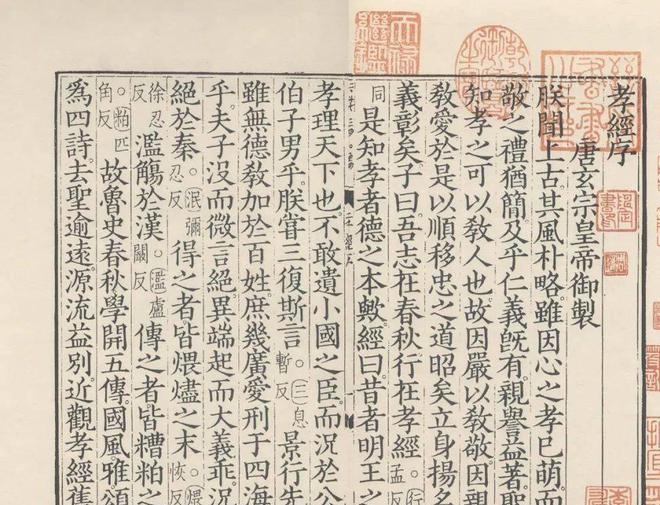 孝經序
唐玄宗皇帝御製
朕聞上古其風朴略。雖因心之孝已萌。而
敬之禮猶簡。及乎仁義旣有。親譽益著。聖
知孝之可以敎人也。故因嚴以敎敬。因親
敎愛。於是以順移忠之道昭矣。立身揚名
義彰矣。子曰。吾志在春秋。行在孝經。行孟反
同是知孝者德之本歟。經曰。昔者明王之
孝理天下也。不敢遺小國之臣。而況於公
伯子男乎。朕甞三復斯言。三息暫反景行先
雖無德敎加於百姓。庶幾廣愛刑于四海
乎。夫子沒而微言絕。異端起而大義乖。況
絕於秦。泯彌忍反得之者皆煨燼之末。煨恢反
徐忍反濫觴於漢。濫盧闞反傳之者皆糟粕之
粕匹角反故魯史春秋。學開五傳。國風雅頌
爲四詩。去聖逾遠。源流益別。近觀孝經舊